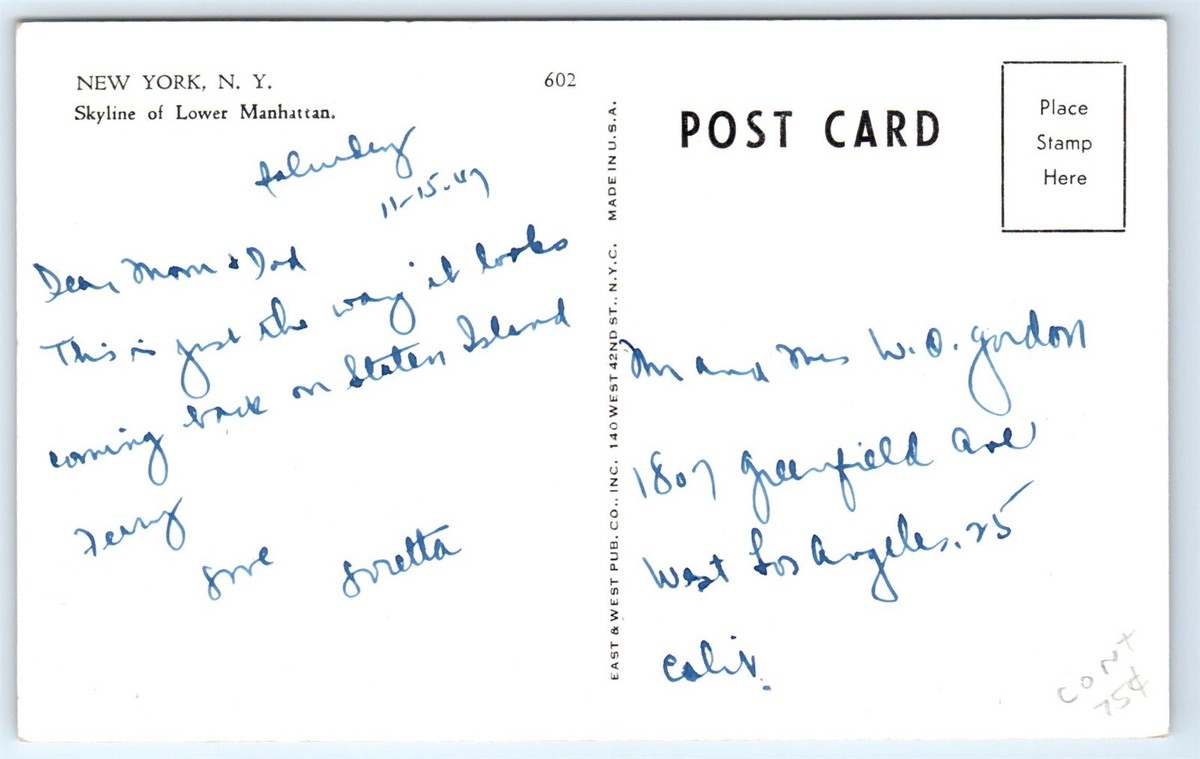 NEW YORK, N. Y.
Skyline of Lower Manhattan.
602
Saturday
11-15-47
Dear Mom & Dad
This is just the way it looks
coming back on Staten Island
Ferry
Love Loretta
EAST & WEST PUB. CO., INC. 140 WEST 42ND ST., N.Y.C. MADE IN U.S.A.
POST CARD
Place
Stamp
Here
Mr and Mrs W. O. Gordon
1807 Greenfield Ave
West Los Angeles. 25
Calif.
CONT
75¢